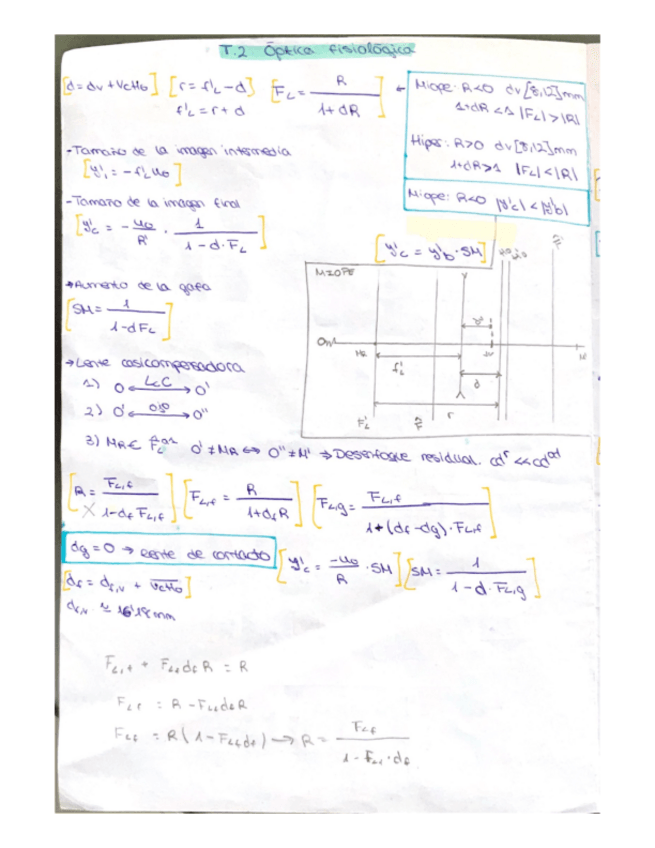 T.2 Óptica fisiológica
[d = dv + VcHo] [r = f'L - d] [FL = R / 1 + dR]
f'L = r + d
Miope: R<0 dv [8,12] mm
1+dR <1 |FL| > |R|
Hiper: R>0 dv [8,12] mm
1+dR>1 |FL| < |R|
Miope: R<0 |y'c| < |y'b|
- Tamaño de la imagen intermedia
[y'1 = - f'L u0]
- Tamaño de la imagen final
[y'c = - u0 / R · 1 / 1 - d · FL]
[y'c = y'b · SM]
→ Aumento de la gafa
[SM = 1 / 1 - dFL]
MIOPE
MR
f'L
d
r
F'L
→ Lente casicompensadora
1) O ← LcC → O'
2) O' ← ojo → O''
3) O' ≠ MR ⇔ O'' ≠ M' → Desenfoque residual.
[R = FL,f / 1 - df FL,f] [FL,f = R / 1 + df R] [FL,g = FL,f / 1 + (df - dg) · FL,f]
dg = 0 → lente de contacto
[y'c = -u0 / R · SM] [SM = 1 / 1 - d · FL,g]
[df = df,v + VcHo]
df,v ≈ 16'18 mm
FL,f + FLf df R = R
FLf = R - FLf df R
FLf = R (1 - FLf df) → R = FLf / 1 - FLf · df